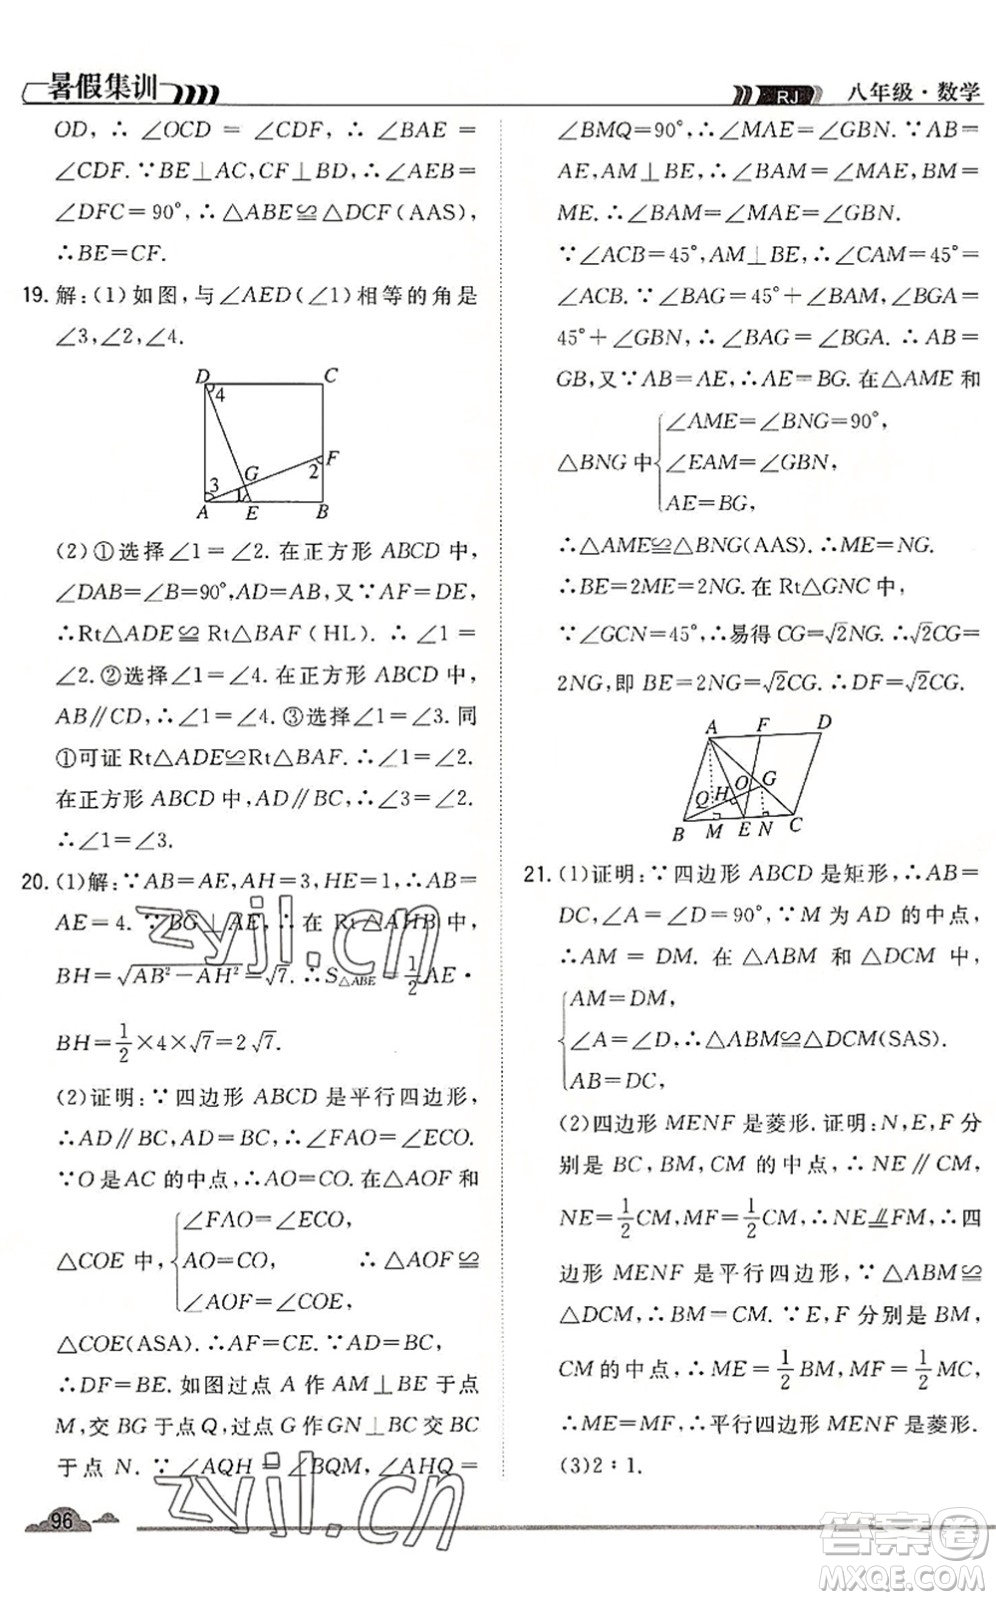 暑假集训
RJ 八年级·数学
OD,∴∠OCD=∠CDF,∴∠BAE=
∠CDF.∵BE⊥AC,CF⊥BD,∴∠AEB=
∠DFC=90°,∴△ABE≌△DCF(AAS),
∴BE=CF.
19.解:(1)如图,与∠AED(∠1)相等的角是
∠3,∠2,∠4.
D 4 C
G 2 F
3 1
A E B
(2)①选择∠1=∠2.在正方形ABCD中,
∠DAB=∠B=90°,AD=AB,又∵AF=DE,
∴Rt△ADE≌Rt△BAF(HL).∴∠1=
∠2.②选择∠1=∠4.在正方形ABCD中,
AB∥CD,∴∠1=∠4.③选择∠1=∠3.同
①可证Rt△ADE≌Rt△BAF.∴∠1=∠2.
在正方形ABCD中,AD∥BC,∴∠3=∠2.
∴∠1=∠3.
20.(1)解:∵AB=AE,AH=3,HE=1,∴AB=
AE=4.∵BG⊥AE,∴在Rt△AHB中,
BH=√(AB²-AH²)=√7.∴S△ABE=1/2AE·
BH=1/2×4×√7=2√7.
(2)证明:∵四边形ABCD是平行四边形,
∴AD∥BC,AD=BC,∴∠FAO=∠ECO.
∵O是AC的中点,∴AO=CO.在△AOF和
∠FAO=∠ECO,
△COE中,{AO=CO, ∴△AOF≌
∠AOF=∠COE,
△COE(ASA).∴AF=CE.∵AD=BC,
∴DF=BE.如图过点A作AM⊥BE于点
M,交BG于点Q,过点G作GN⊥BC交BC
于点N.∵∠AQH=∠BQM,∠AHQ=
∠BMQ=90°,∴∠MAE=∠GBN.∵AB=
AE,AM⊥BE,∴∠BAM=∠MAE,BM=
ME.∴∠BAM=∠MAE=∠GBN.
∵∠ACB=45°,AM⊥BE,∴∠CAM=45°=
∠ACB.∵∠BAG=45°+∠BAM,∠BGA=
45°+∠GBN,∴∠BAG=∠BGA.∴AB=
GB,又∵AB=AE,∴AE=BG.在△AME和
∠AME=∠BNG=90°,
△BNG中{∠EAM=∠GBN,
AE=BG,
∴△AME≌△BNG(AAS).∴ME=NG.
∴BE=2ME=2NG.在Rt△GNC中,
∵∠GCN=45°,∴易得CG=√2NG.∴√2CG=
2NG,即BE=2NG=√2CG.∴DF=√2CG.
A F D
O G
Q H
B M E N C
21.(1)证明:∵四边形ABCD是矩形,∴AB=
DC,∠A=∠D=90°,∵M为AD的中点,
∴AM=DM.在△ABM和△DCM中,
{AM=DM,
∠A=∠D,∴△ABM≌△DCM(SAS).
AB=DC,
(2)四边形MENF是菱形.证明:N,E,F分
别是BC,BM,CM的中点,∴NE∥CM,
NE=1/2CM,MF=1/2CM,∴NE⫽FM,∴四
边形MENF是平行四边形,∵△ABM≌
△DCM,∴BM=CM.∵E,F分别是BM,
CM的中点,∴ME=1/2BM,MF=1/2MC,
∴ME=MF,∴平行四边形MENF是菱形.
(3)2∶1.
96
zyjl.cn
zyjl.cn
答案卷
MXQE.COM